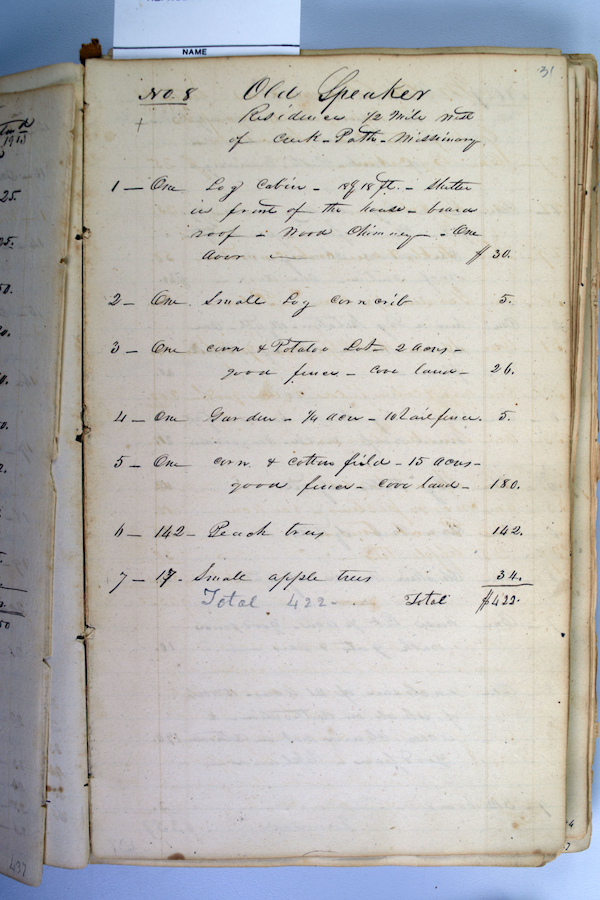 NAME
31
No. 8 Old Speaker
Residence 1/2 Mile West
of Creek-Path-Missionary
1 — One Log Cabin - 18 by 18 ft. - Shelter
in front of the house - board
roof - Wood Chimney - One
door $ 30.
2 - One Small Log corn crib 5.
3 - One corn & Potatoe Lot - 2 acres -
good fence - land - 26.
4 - One Garden - 1/4 acre - fence. 5.
5 - One corn & cotton field - 15 acres -
good fence - land - 180.
6 - 142 - Peach trees 142.
7 - 17 - Small apple trees 34.
Total 422. Total $422.
437